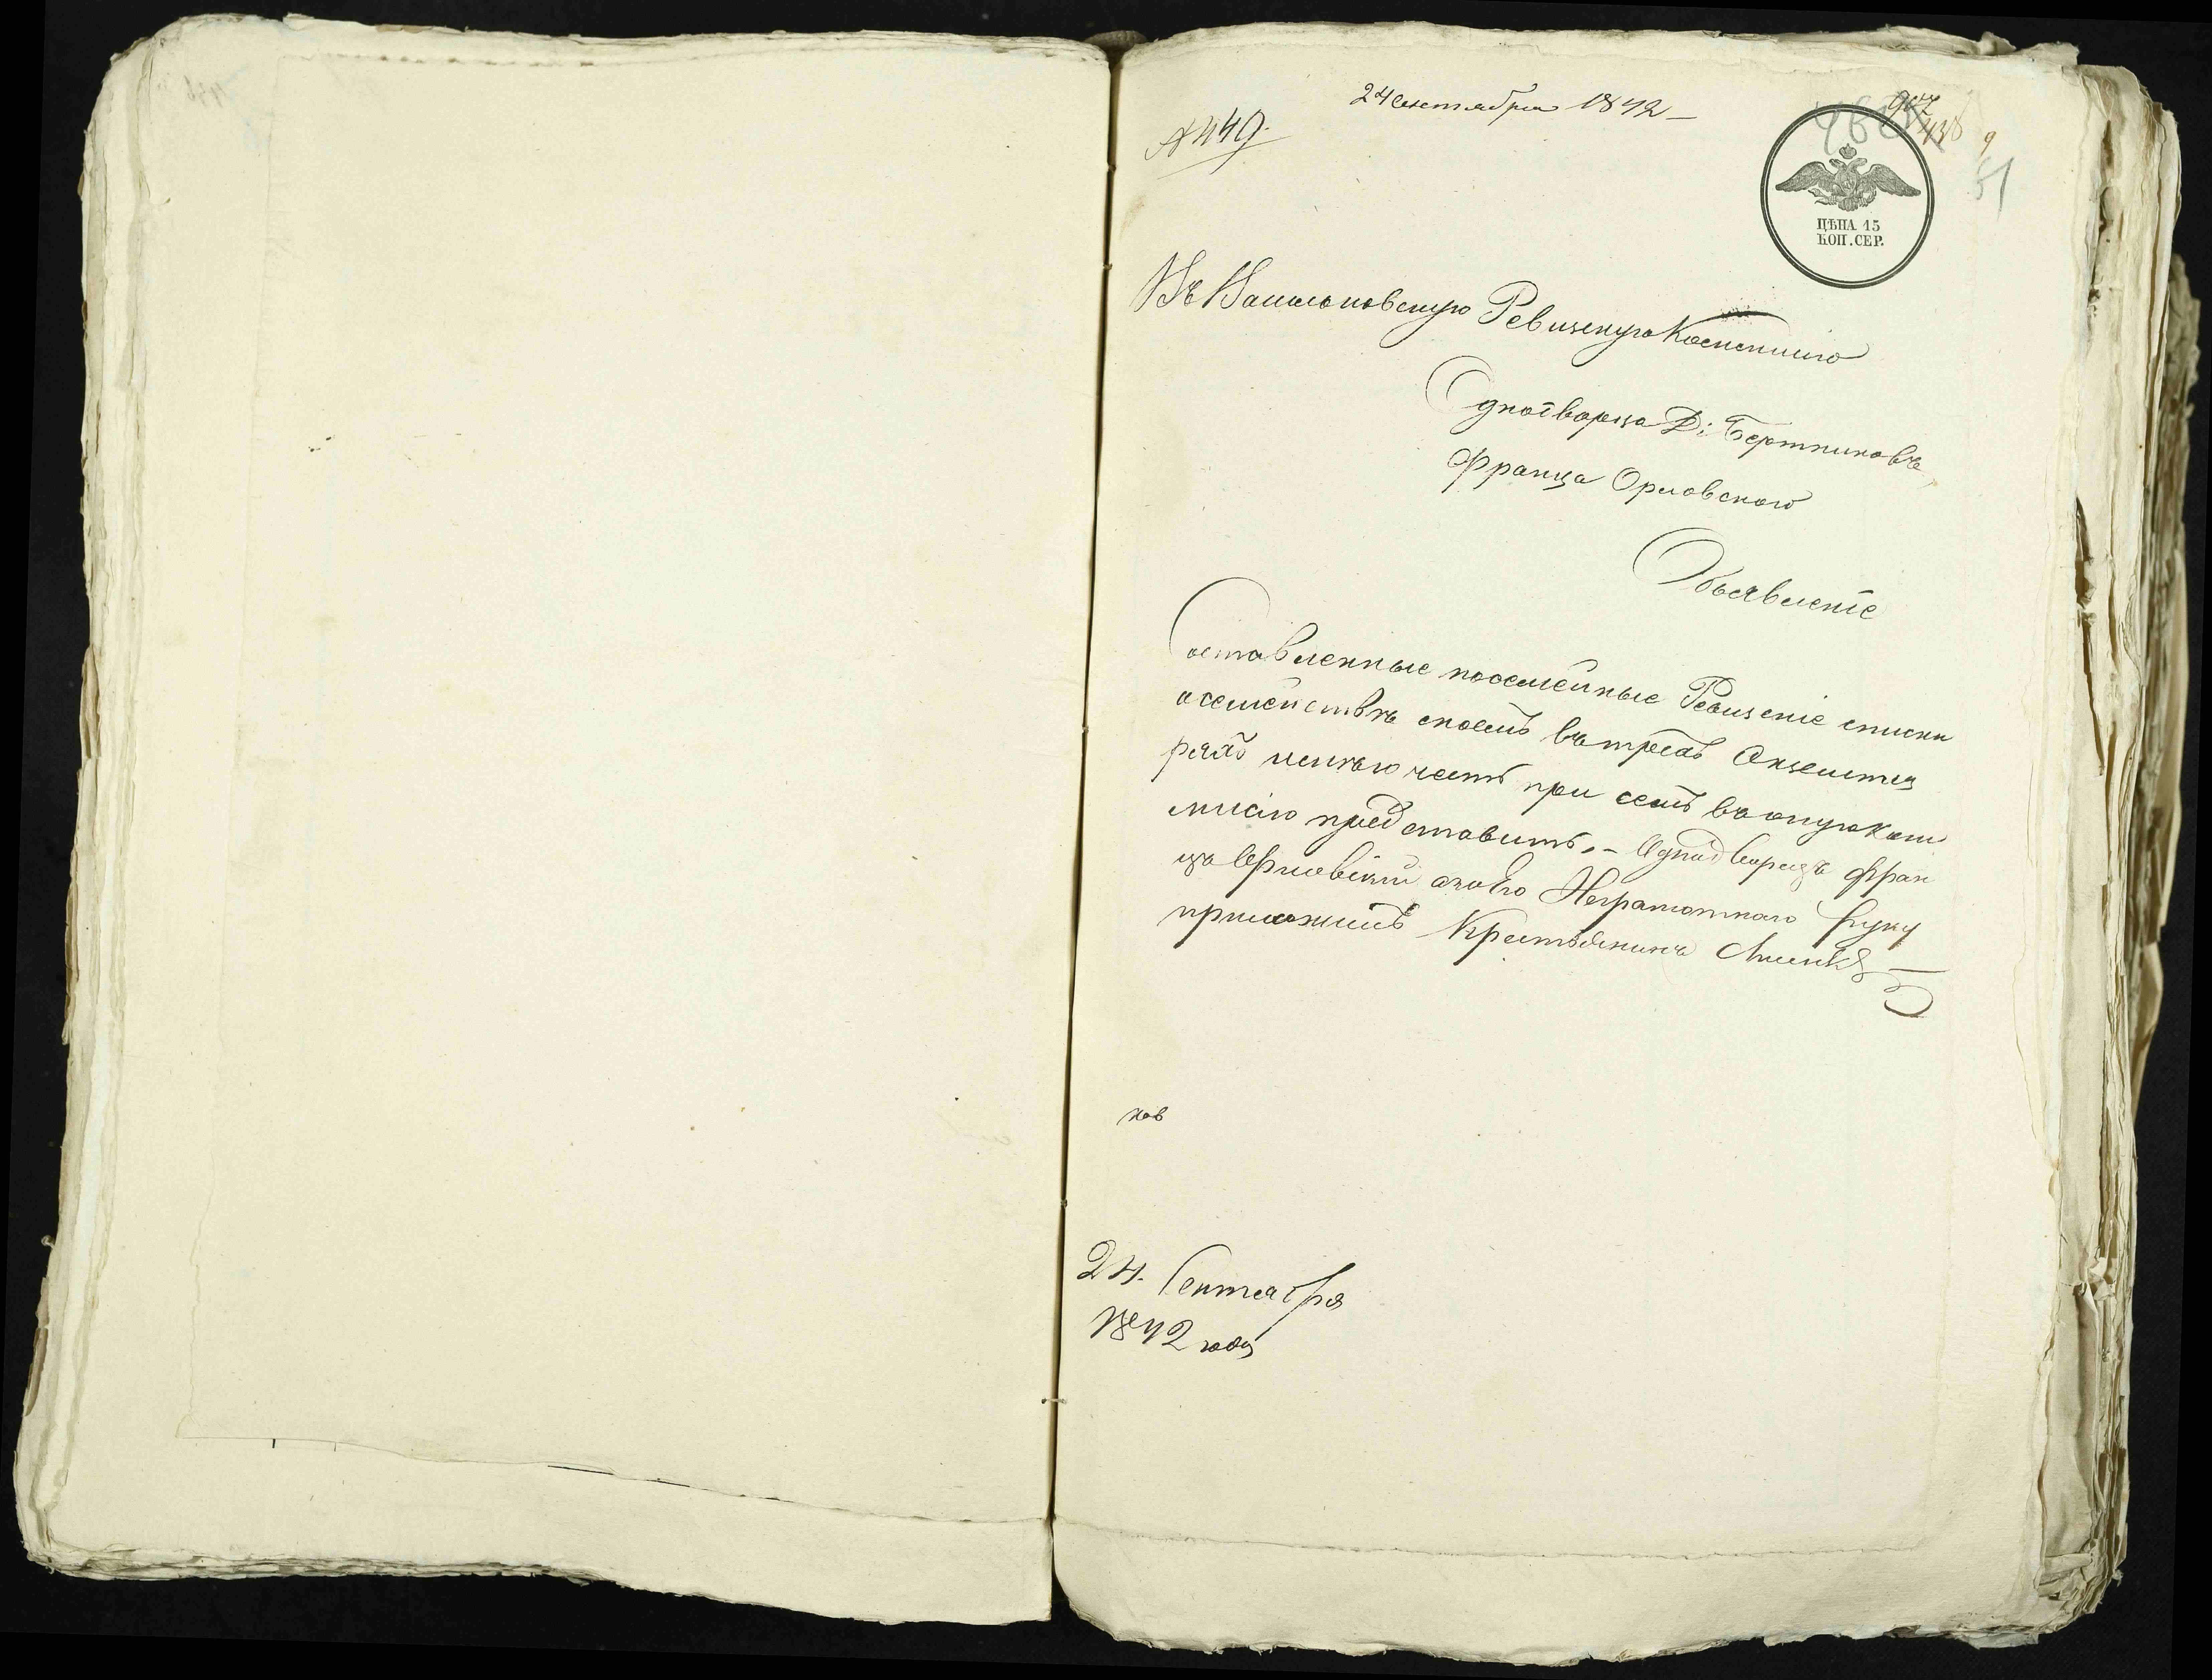 24 Сентября 1842 –
№ 449.
ЦѢНА 15
КОП. СЕР.
51
Въ Ревизскую Комисию
Однодворца Д: Бортниковъ
Франца Орловского
Объявленіе
Составленные посемейные Ревизскіе списки
о семействѣ своемъ въ трехъ Экземпля
рахъ имѣю честь при семъ въ оную Коми
мисію представить. – Однодворецъ Фран
ца Орловскій а за Его Неграмотнаго Руку
приложилъ Крестьянинъ
ков
24. Сентября
1842 года